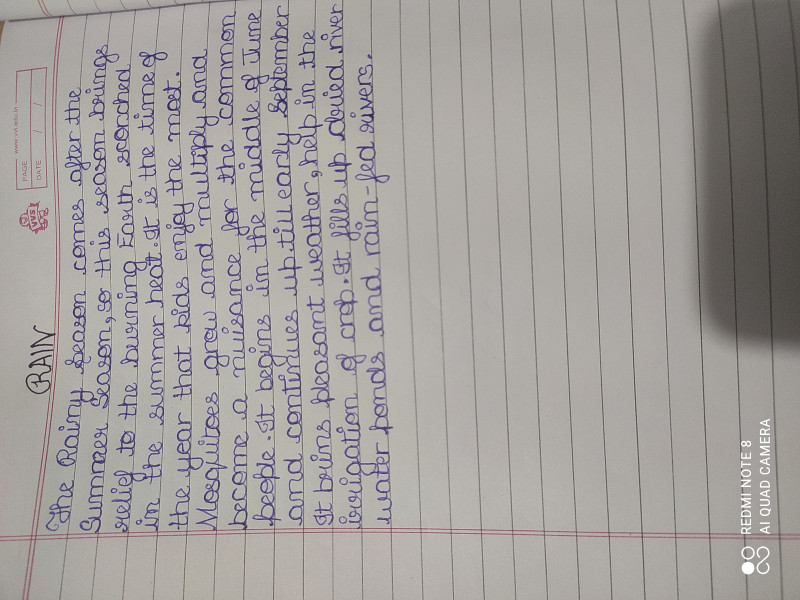 www.vvs.edu.in
PAGE
DATE / /
VVS
RAIN
The Rainy Season comes after the
Summer Season, so this season brings
relief to the burning Earth scorched
in the summer heat. It is the time of
the year that kids enjoy the most.
Mosquitoes grow and multiply and
become a nuisance for the common
people. It begins in the middle of June
and continues up till early september
It brins pleasant weather, help in the
irrigation of crop. It fills up dried river
water ponds and rain-fed rivers.
REDMI NOTE 8
AI QUAD CAMERA